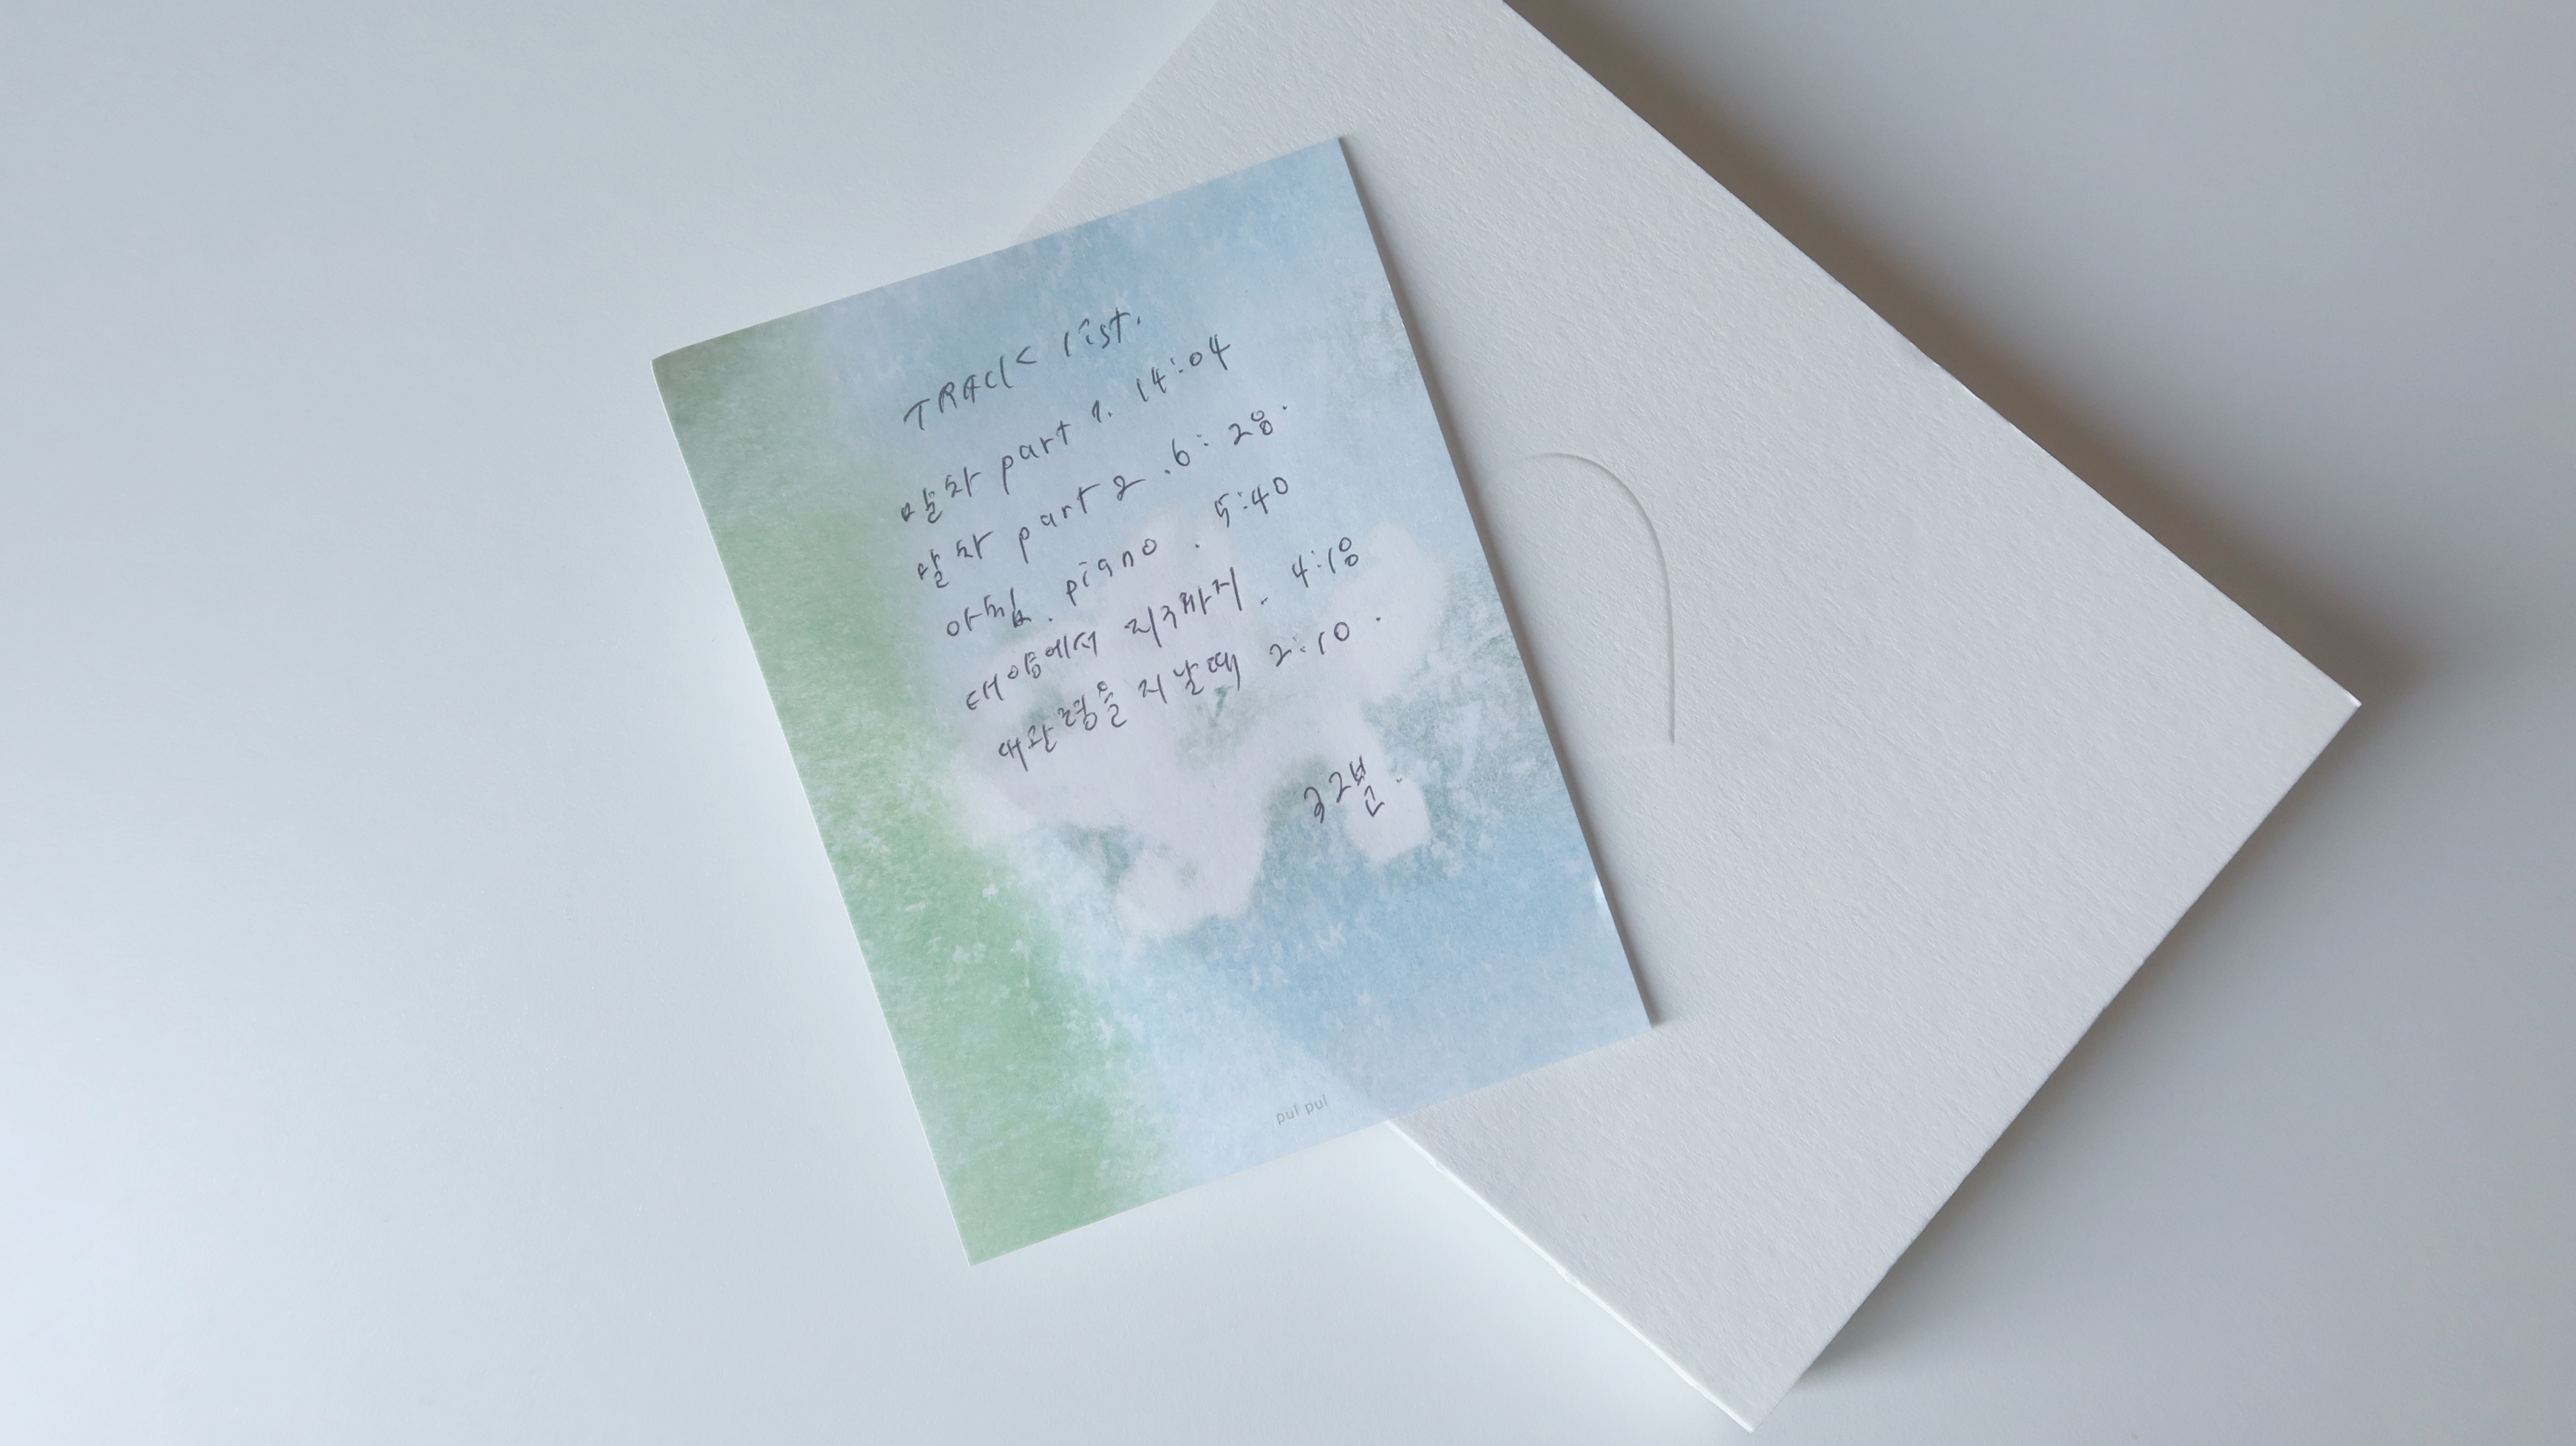 TRACK list.
말차 part 1. 14:04
말차 part 2 . 6:28.
아침. piano . 5:40
태양에서 지구까지. 4:18
대관령을 지날때 2:10.
32분.
pul pul